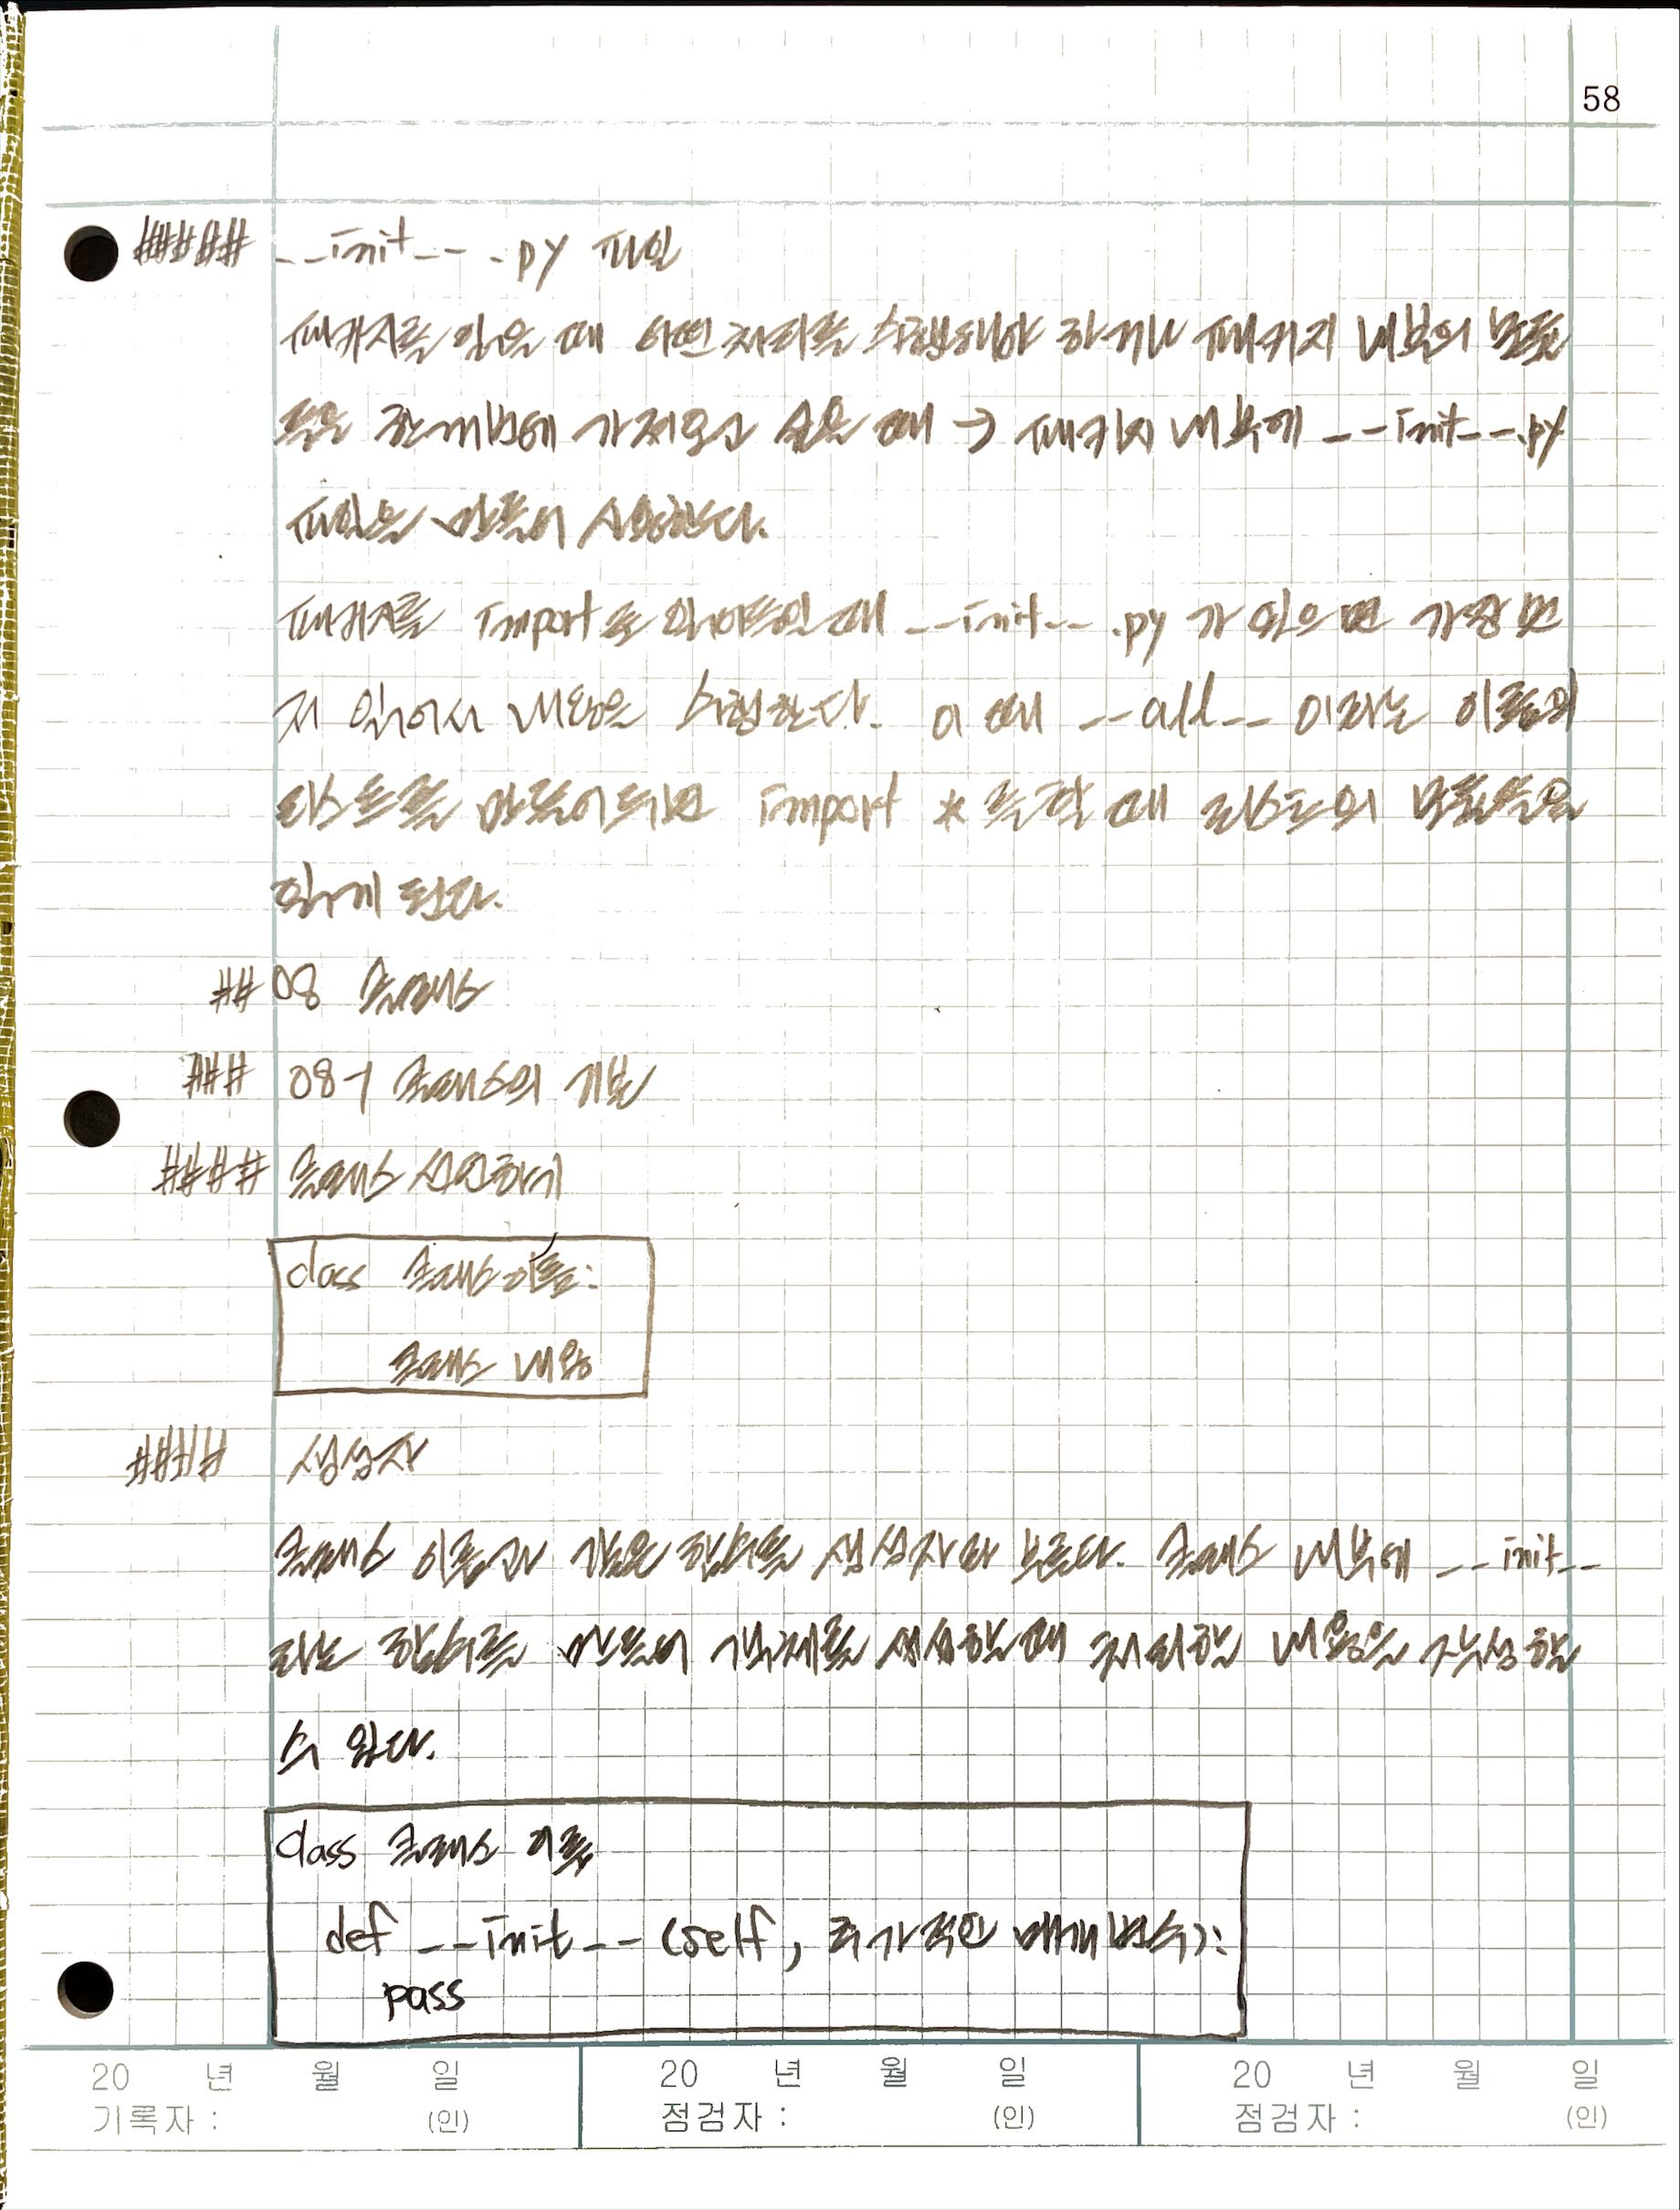 58
##### __init__.py 파일
패키지를 읽을 때 어떤 처리를 수행해야 하거나 패키지 내부의 모듈
들을 한꺼번에 가져오고 싶을 때 → 패키지 내부에 __init__.py
파일을 만들어 사용한다.
패키지를 import로 읽어들일 때 __init__.py가 있으면 가장 먼
저 읽어서 내용을 수행한다. 이 때 __all__이라는 이름의
리스트를 만들어두면 import * 를 할 때 리스트의 모듈만을
읽게 된다.
## 08 클래스
### 08-1 클래스의 기본
#### 클래스 선언하기
class 클래스 이름:
클래스 내용
#### 생성자
클래스 이름과 같은 함수를 생성자라 부른다. 클래스 내부에 __init__
라는 함수를 만들어 객체를 생성할 때 처리할 내용을 작성할
수 있다.
class 클래스 이름:
def __init__ (self, 추가적인 매개변수):
pass
20 년 월 일 20 년 월 일 20 년 월 일
기록자 : (인) 점검자 : (인) 점검자 : (인)